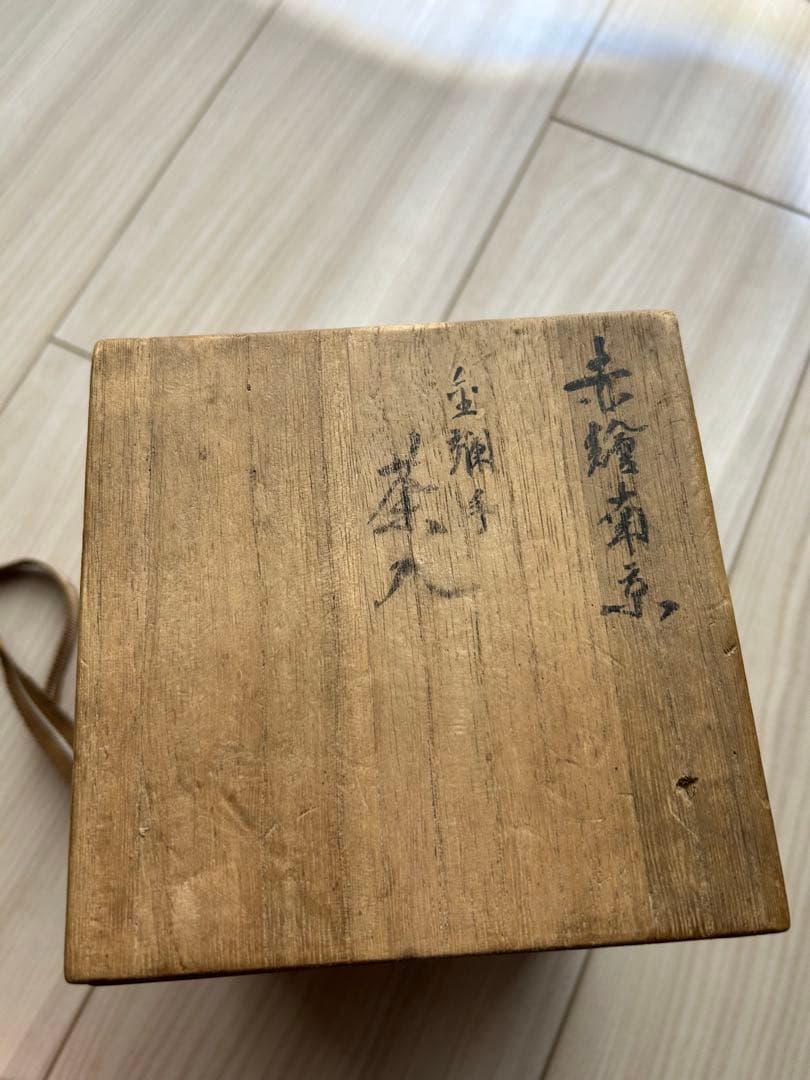 赤繪南京
金襴手
茶入